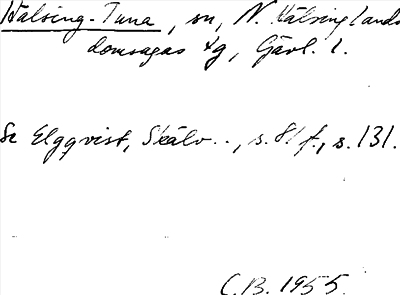 Hälsing-Tuna, sn, N. Hälsinglands
domsagas tg, Gävl. l.
Se Elgqvist, Skälv..., s. 81 f., s. 131.
C.B. 1955.